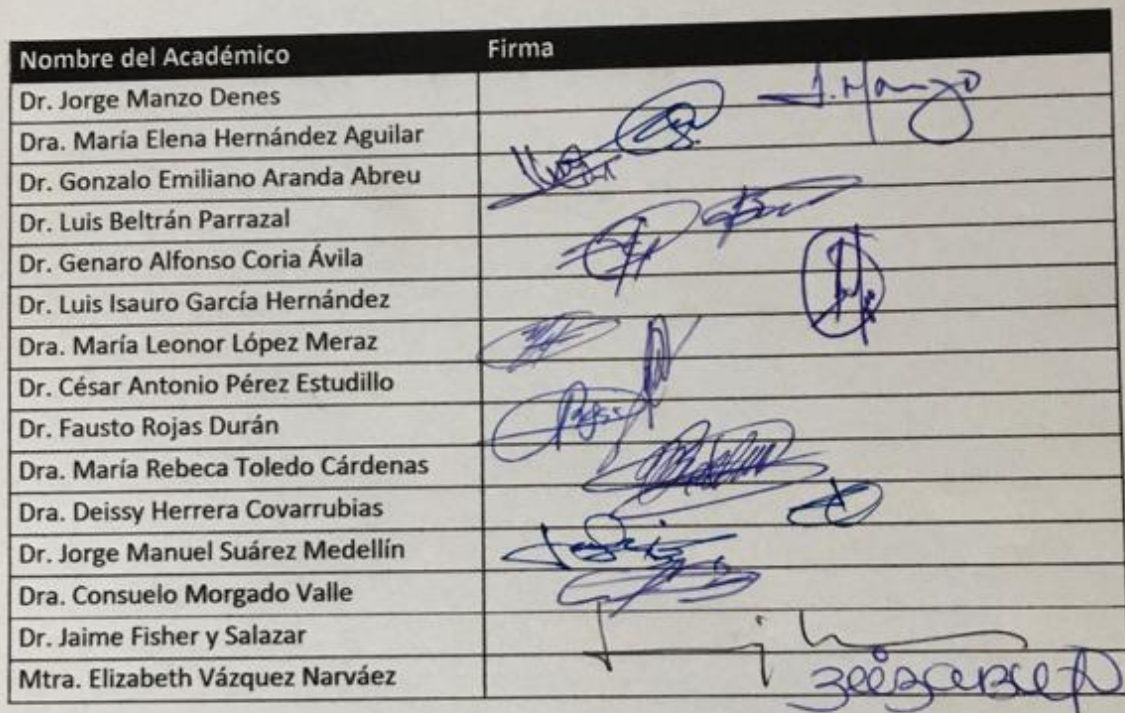 Nombre del Académico Firma
Dr. Jorge Manzo Denes J. Manzo
Dra. María Elena Hernández Aguilar
Dr. Gonzalo Emiliano Aranda Abreu
Dr. Luis Beltrán Parrazal
Dr. Genaro Alfonso Coria Ávila
Dr. Luis Isauro García Hernández
Dra. María Leonor López Meraz
Dr. César Antonio Pérez Estudillo
Dr. Fausto Rojas Durán
Dra. María Rebeca Toledo Cárdenas
Dra. Deissy Herrera Covarrubias
Dr. Jorge Manuel Suárez Medellín
Dra. Consuelo Morgado Valle
Dr. Jaime Fisher y Salazar
Mtra. Elizabeth Vázquez Narváez